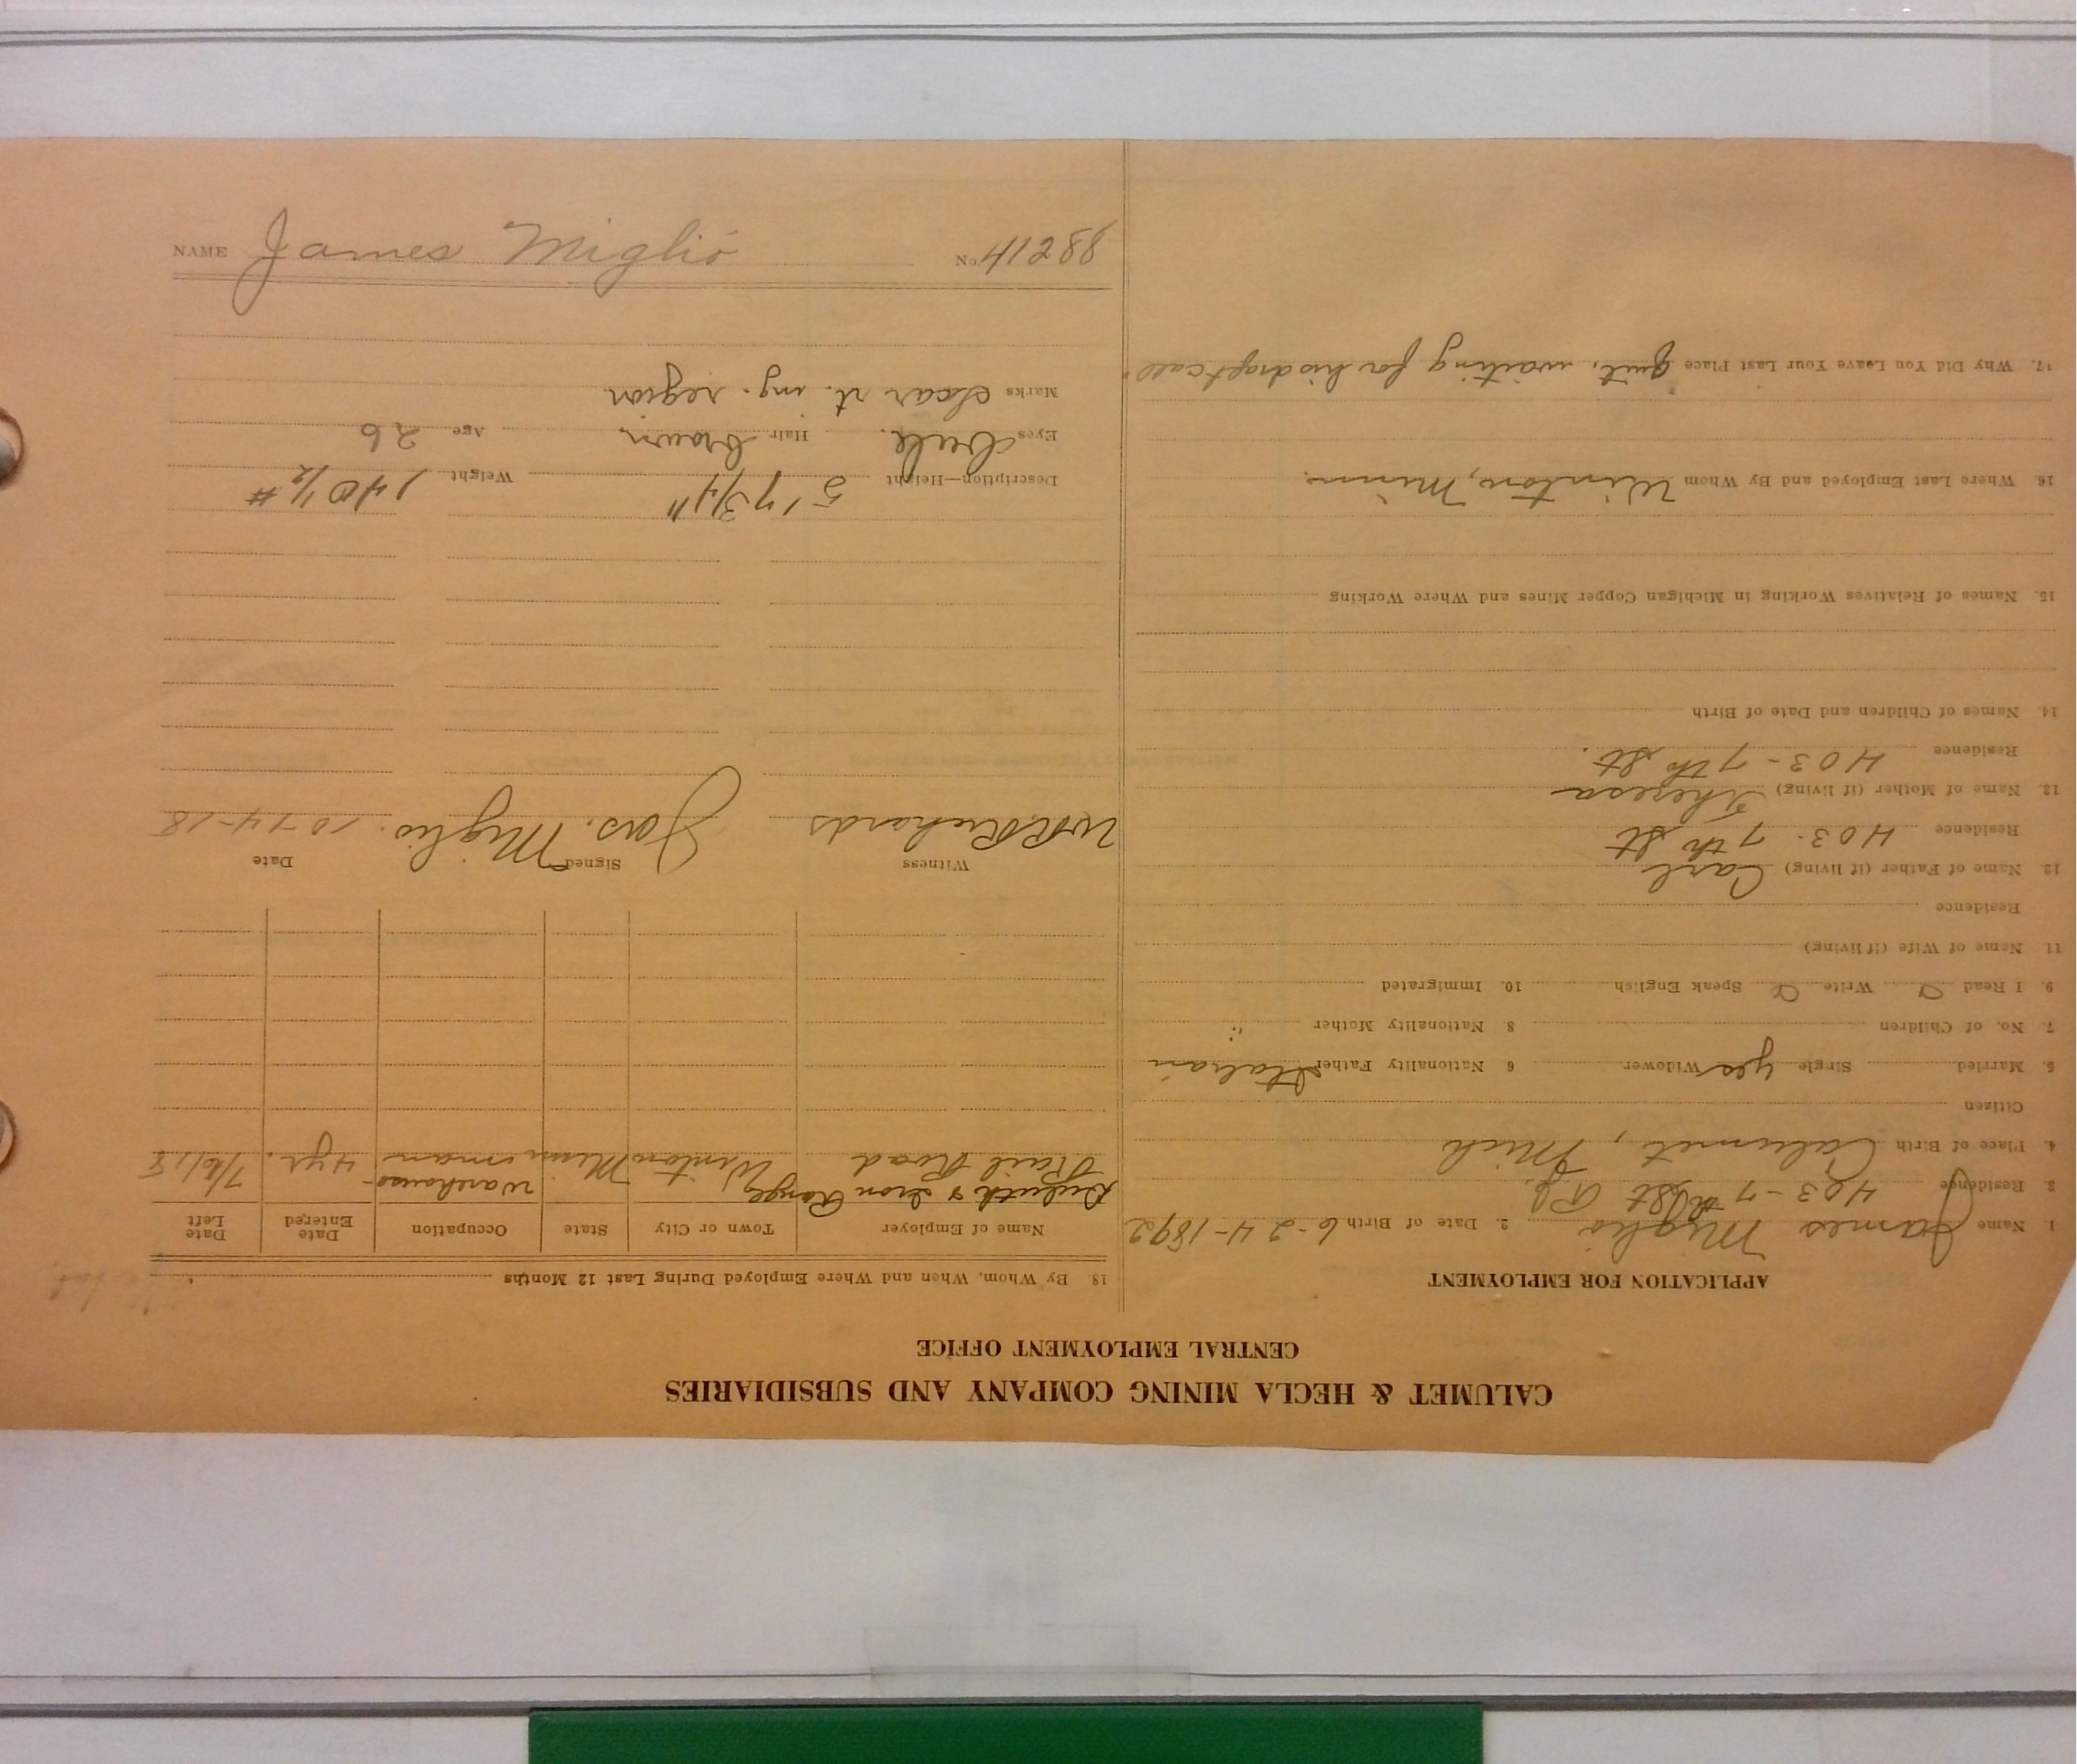 CALUMET & HECLA MINING COMPANY AND SUBSIDIARIES
CENTRAL EMPLOYMENT OFFICE
APPLICATION FOR EMPLOYMENT
1. Name James Miglio 2. Date of Birth 6-24-1892
3. Residence 403-7th St
4. Place of Birth Calumet, Mich
Citizen
5. Married Single yes Widower 6 Nationality Father Italian
7. No. of Children 8 Nationality Mother "
9. I Read Write Speak English 10. Immigrated
11. Name of Wife (if living)
Residence
12. Name of Father (if living) Carl
Residence 403-7th St
13. Name of Mother (if living) Theresa
Residence 403-7th St.
14. Names of Children and Date of Birth
15. Names of Relatives Working in Michigan Copper Mines and Where Working
16. Where Last Employed and By Whom Winton, Minn.
17. Why Did You Leave Your Last Place Quit, waiting for his draft call.
18. By Whom, When and Where Employed During Last 12 Months
Name of Employer Town or City State Occupation Date Entered Date Left
Duluth & Iron Range Rail Road Winton Minn warehouse-man 4 yr. 7/6/18
Witness Signed Date
Richards Jas. Miglio 10-14-18
Description—Height 5'7 3/4" Weight 140 1/2 #
Eyes Hair brown Age 26
Marks Scar rt. ing. region
NAME James Miglio No. 41288